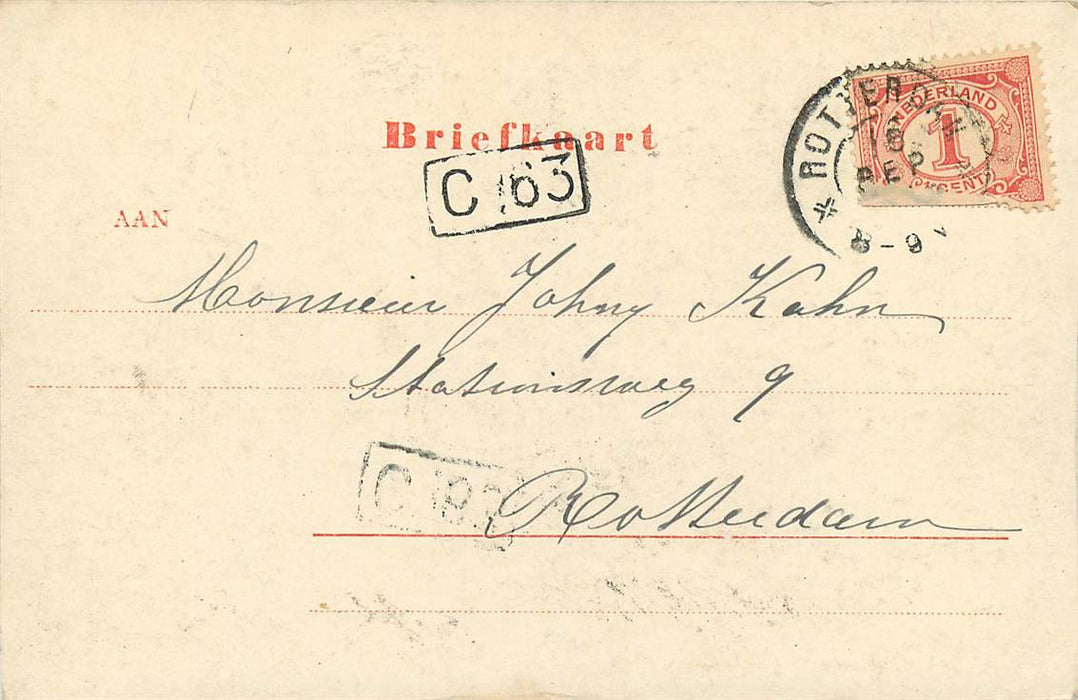 Briefkaart
C 163
ROTTERDAM
SEP
8-9 V
NEDERLAND
1
CENT
AAN
Monsieur Johny Kahn
Stationsweg 9
C 163
Rotterdam